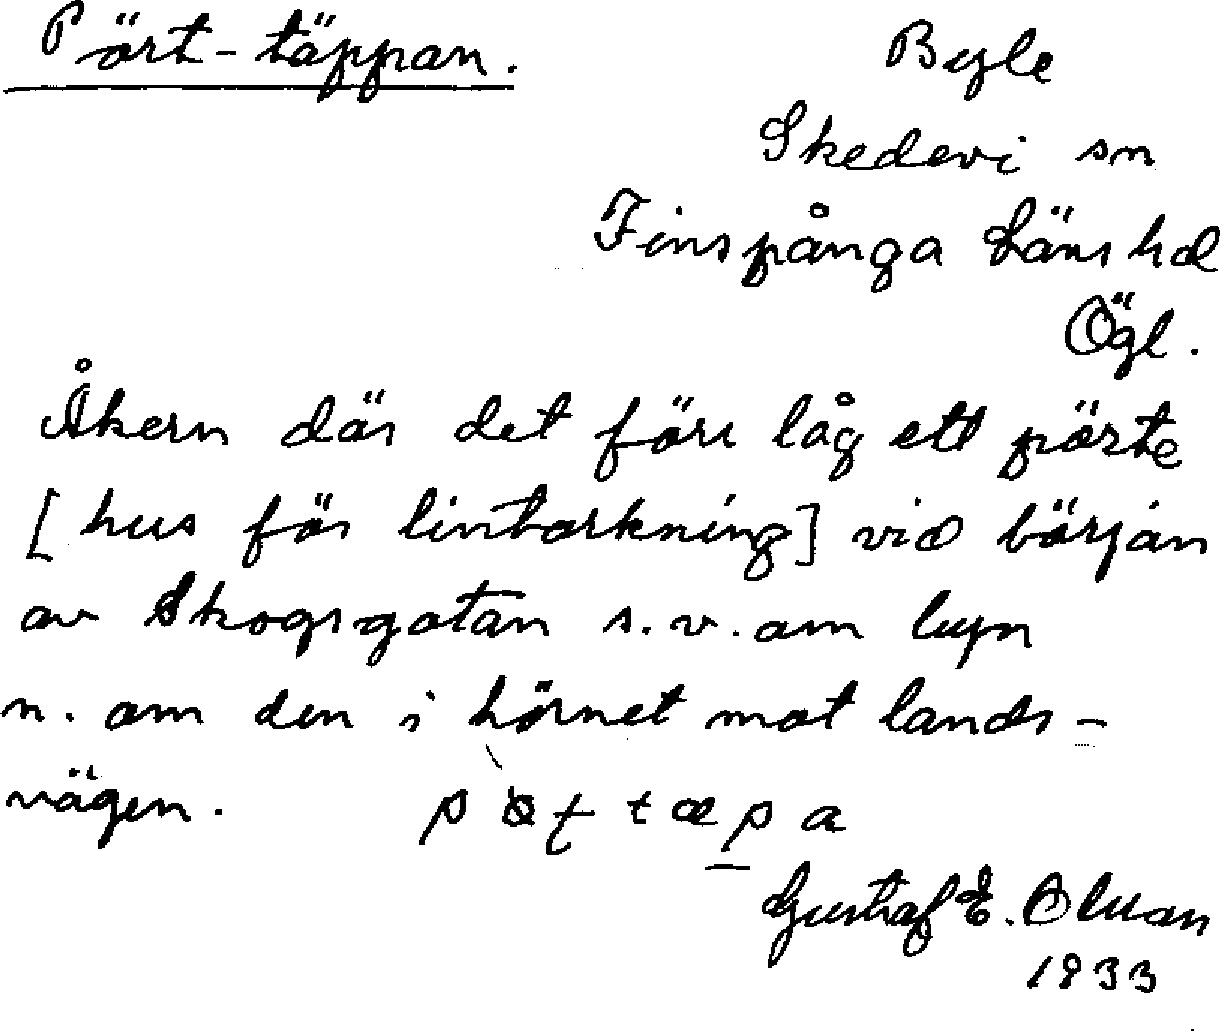 Pört-täppan.
Byle
Skedevi sn
Finspånga Läns hd
Ögl.
Åkern där det förr låg ett pörte
[hus för lintorkning] vid början
av Skogsgatan s.v. om byn
n. om den i hörnet mot lands-
vägen.
Gustaf E. Olsson
1933